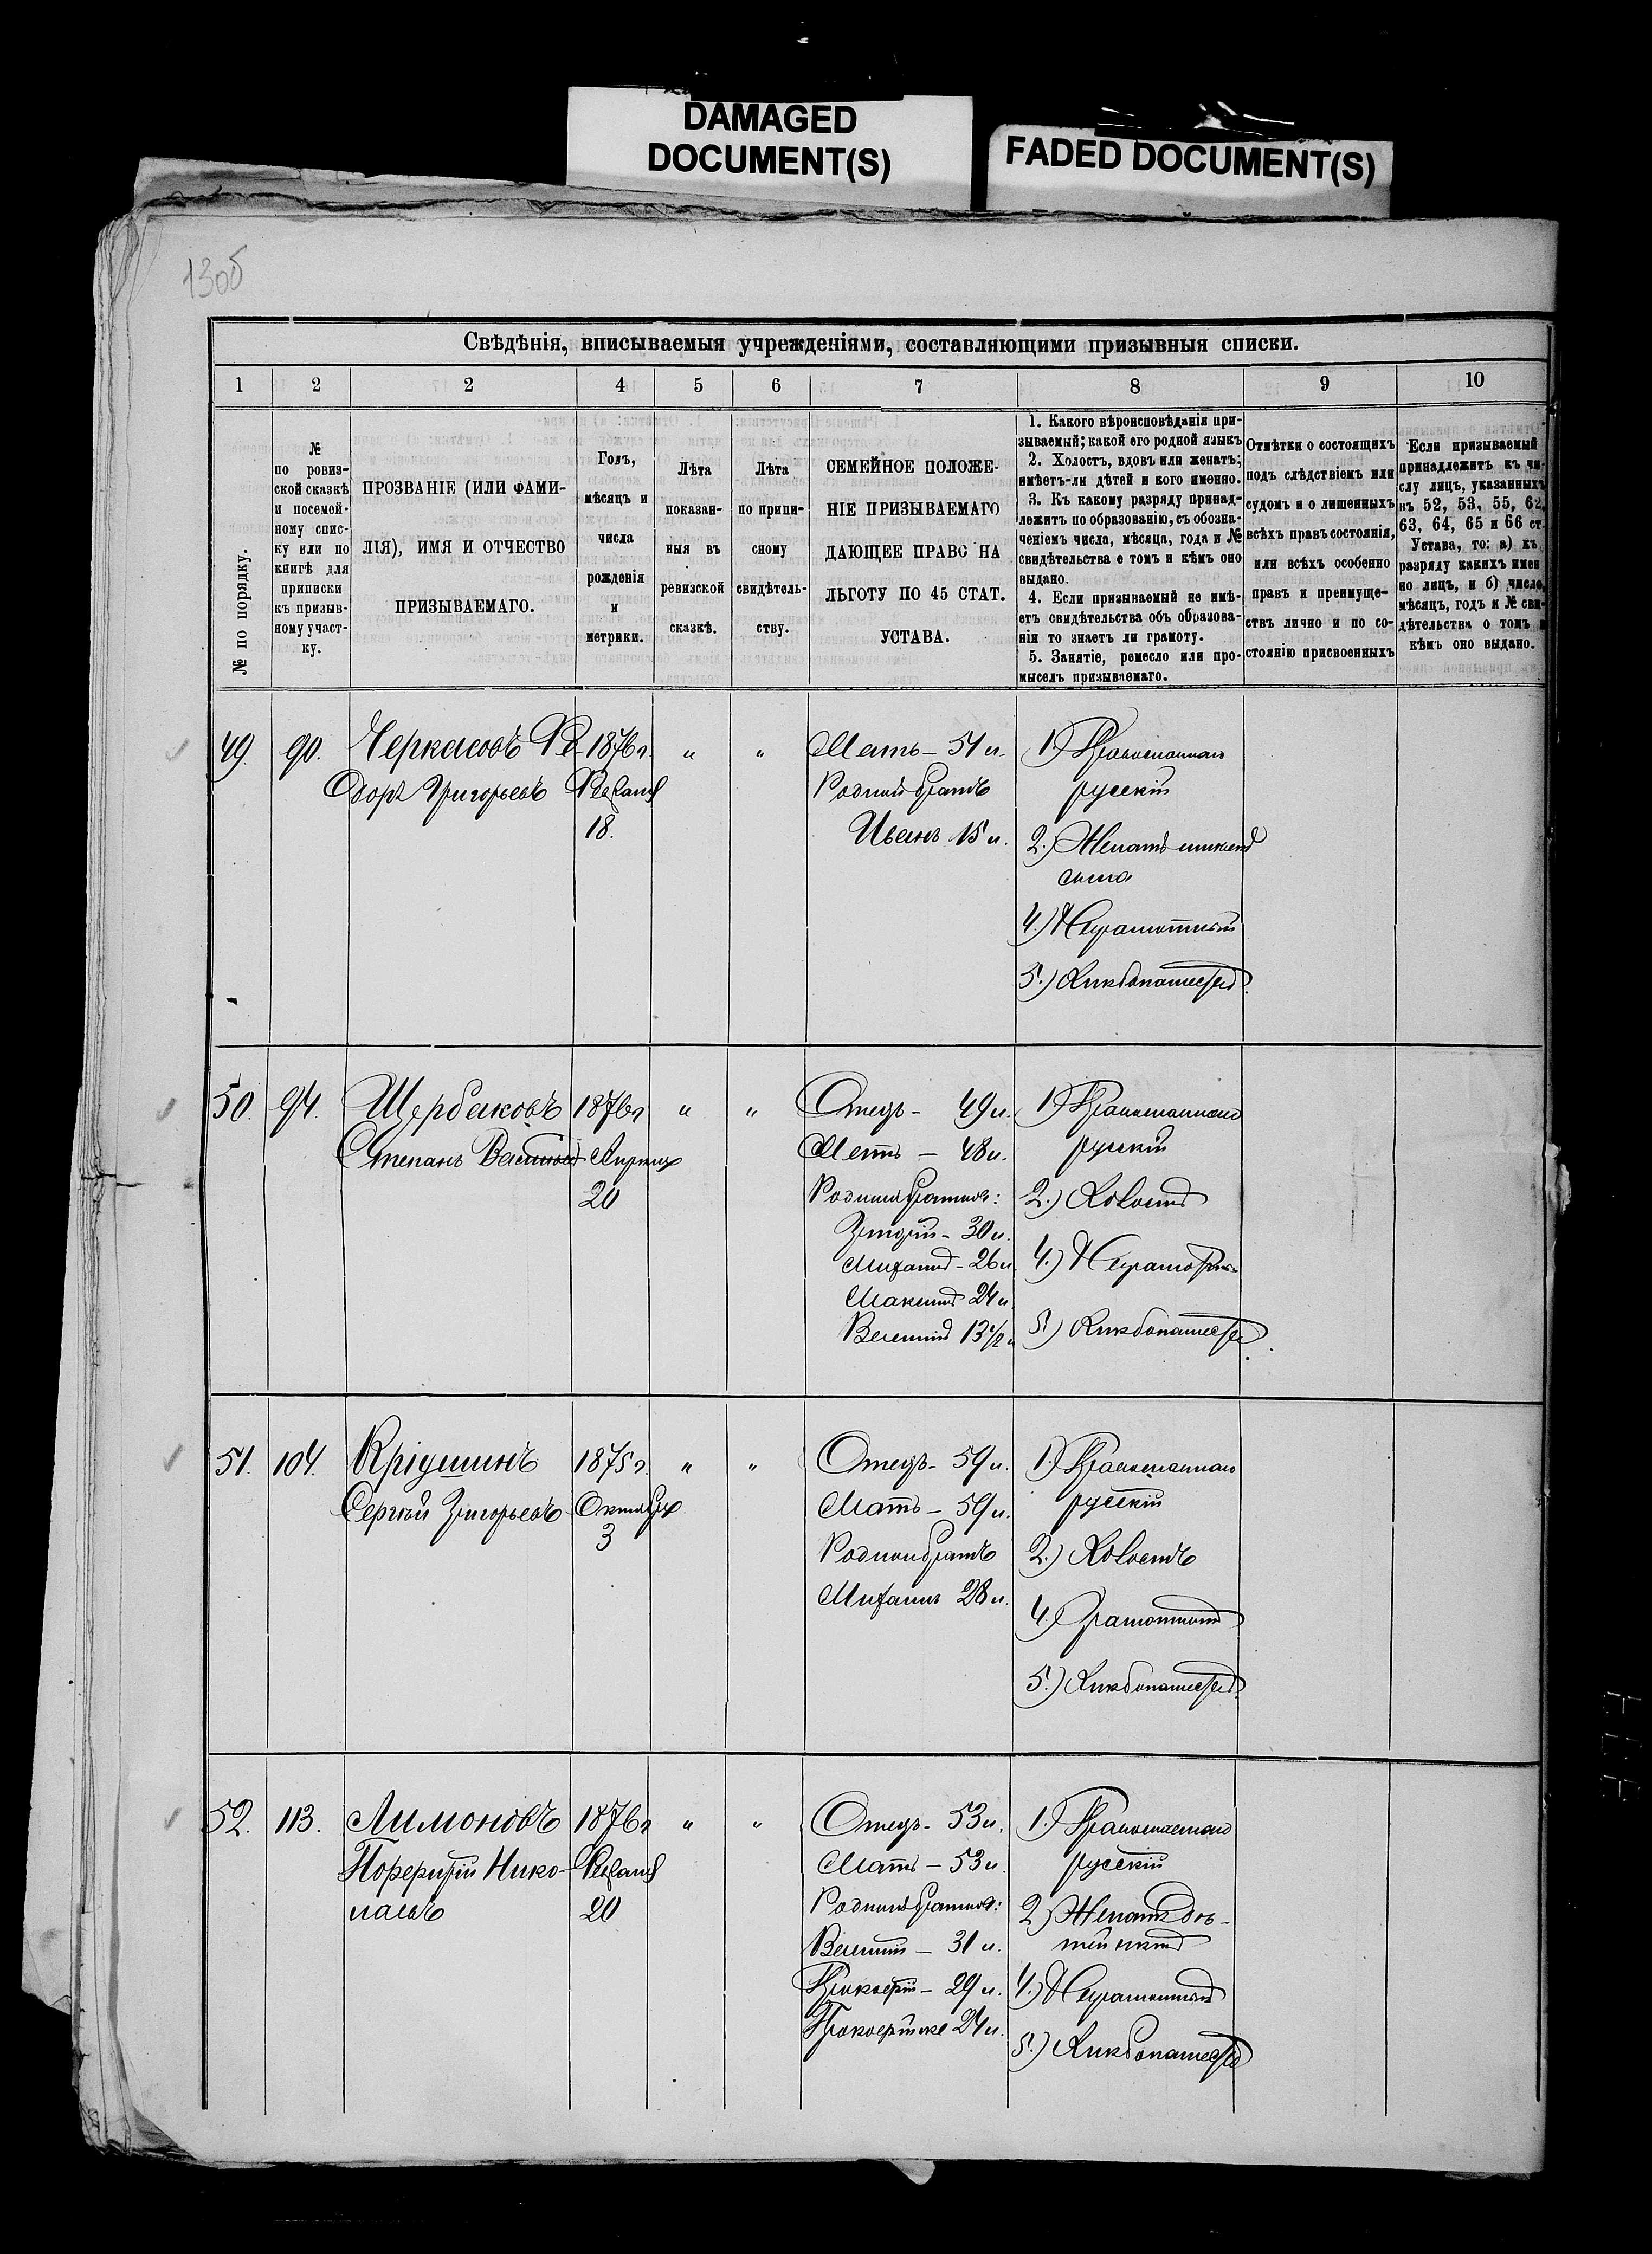 DAMAGED
DOCUMENT(S)
FADED DOCUMENT(S)
1305
Свѣдѣнія, вписываемыя учрежденіями, составляющими призывныя списки.
1 2 2 4 5 6 7 8 9 10
№ по порядку.
№
по ровиз-
ской сказкѣ
и посемей-
ному спис-
ку или по
книгѣ для
приписки
къ призыв-
ному участ-
ку.
ПРОЗВАНІЕ (ИЛИ ФАМИ-
ЛІЯ), ИМЯ И ОТЧЕСТВО
ПРИЗЫВАЕМАГО.
Годъ,
мѣсяцъ и
числа
рожденія
и
метрики.
Лѣта
показан-
ныя въ
ревизской
сказкѣ.
Лѣта
по припи-
сному
свидѣтель-
ству.
СЕМЕЙНОЕ ПОЛОЖЕ-
НІЕ ПРИЗЫВАЕМАГО
ДАЮЩЕЕ ПРАВО НА
ЛЬГОТУ ПО 45 СТАТ.
УСТАВА.
1. Какого вѣроисповѣданія при-
зываемый; какой его родной языкъ
2. Холостъ, вдовъ или женатъ;
имѣетъ-ли дѣтей и кого именно.
3. Къ какому разряду принад-
лежитъ по образованію, съ обозна-
ченіемъ числа, мѣсяца, года и №
свидѣтельства о томъ и кѣмъ оно
выдано.
4. Если призываемый не имѣ-
етъ свидѣтельства объ образова-
ніи то знаетъ ли грамоту.
5. Занятіе, ремесло или про-
мыселъ призываемаго.
Отмѣтки о состоящихъ
подъ слѣдствіемъ или
судомъ и о лишенныхъ
всѣхъ правъ состоянія,
или всѣхъ особенно
правъ и преимуще-
ствъ лично и по со-
стоянію присвоенныхъ
Если призываемый
принадлежитъ къ чи-
слу лицъ, указанныхъ
въ 52, 53, 55, 62,
63, 64, 65 и 66 ст.
Устава, то: а) къ
разряду какихъ имен
но лицъ, и б) число,
мѣсяцъ, годъ и № сви-
дѣтельства о томъ и
кѣмъ оно выдано.
49. 90. Черкасовъ Фе-
одоръ Григорьевъ
1876 г.
Февраля
18.
" "
Мать – 51 л.
Родной братъ
Иванъ 15 л.
1.) Православнаго
русскій
2.) Женатъ имѣетъ
сына
4.) Неграмотный
5.) Хлѣбопашецъ
50. 94. Щербаковъ
Степанъ Васильевъ
1876 г
Апрѣля
20
" "
Отецъ – 49 л.
Мать – 48 л.
Родные братья:
30 л.
Михаилъ – 26 л.
Максимъ 24 л.
Василій 13 1/2 л
1.) Православнаго
русскій
2.) Холостъ
4.) Неграмотный
5.) Хлѣбопашецъ
51. 104. Кріушинъ
Сергѣй Григорьевъ
1875 г.
Октября
3
" "
Отецъ – 59 л.
Мать – 59 л.
Родной братъ
Михаилъ 28 л.
1.) Православнаго
русскій
2.) Холостъ
4.) Грамотный
5.) Хлѣбопашецъ
52. 113. Лимоновъ
Порфирій Нико-
лаевъ
1876 г
Февраля
20
" "
Отецъ – 53 л.
Мать – 53 л.
Родные братья:
Василій – 31 л.
29 л.
24 л.
1.) Православнаго
русскій
2.) Женатъ дѣ-
тей нѣтъ
4.) Неграмотный
5.) Хлѣбопашецъ